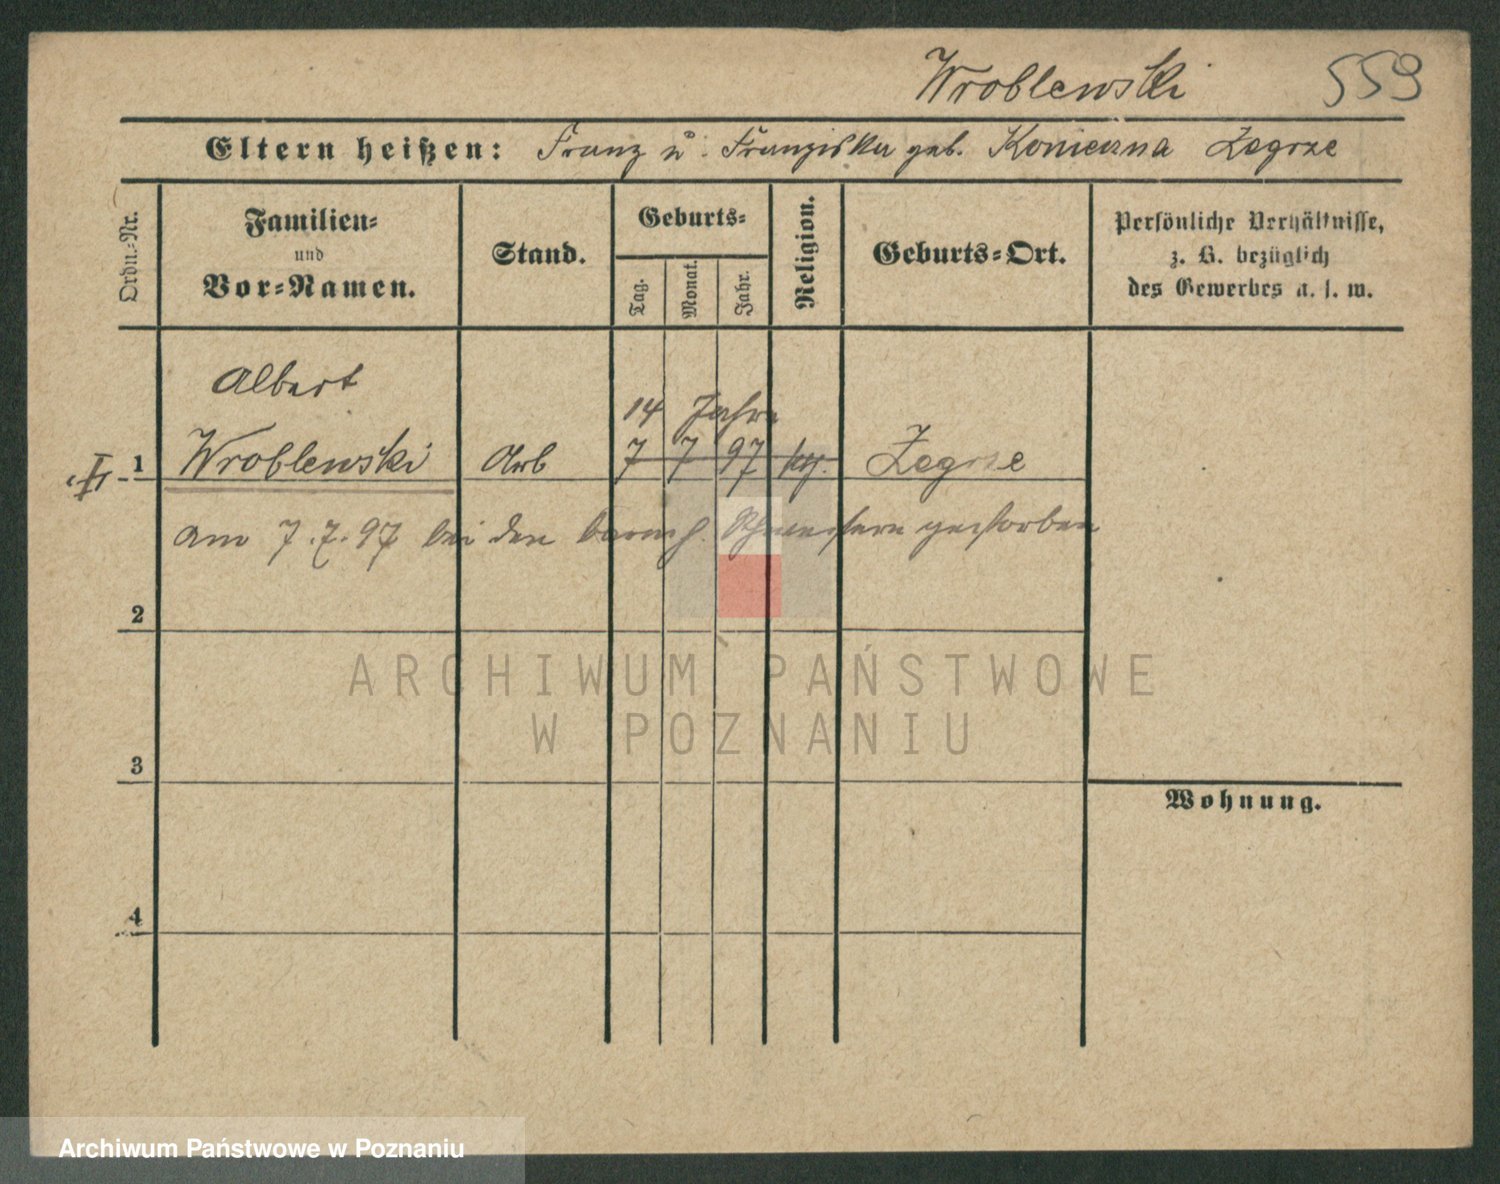 Wroblewski 559
Eltern heißen: Franz u. Franziska geb. Konieczna Zegrze
Ordn.-Nr.
Familien-
und
Vor-Namen.
Stand.
Geburts-
Tag.
Monat.
Jahr.
Religion.
Geburts-Ort.
Persönliche Verhältnisse,
z. B. bezüglich
des Gewerbes u. s. w.
Albert
14 Jahre
1 Wroblewski Arb 7 7 97 Zegrze
am 7.7.97 bei den barmh. Schwestern gestorben
2
3
4
Wohnung.
ARCHIWUM PAŃSTWOWE
W POZNANIU
Archiwum Państwowe w Poznaniu